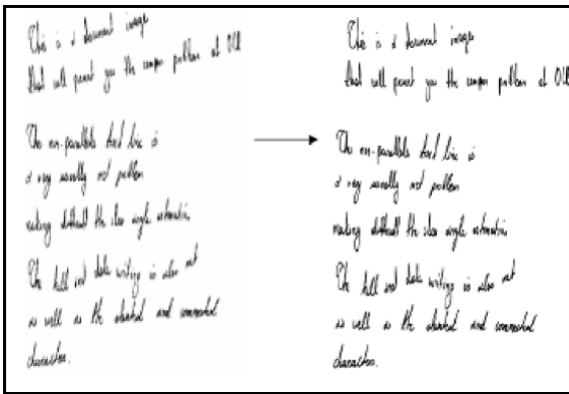 This is a document image
that will present you the common problem at OCR
The non-parallels text line is
a very usually not problem
making difficult the slew angle estimation,
The hill and dale writing is also met
as well as the slanted and connected
characters.
This is a document image
that will present you the common problem at OCR
The non-parallels text line is
a very usually not problem
making difficult the slew angle estimation,
The hill and dale writing is also met
as well as the slanted and connected
characters.